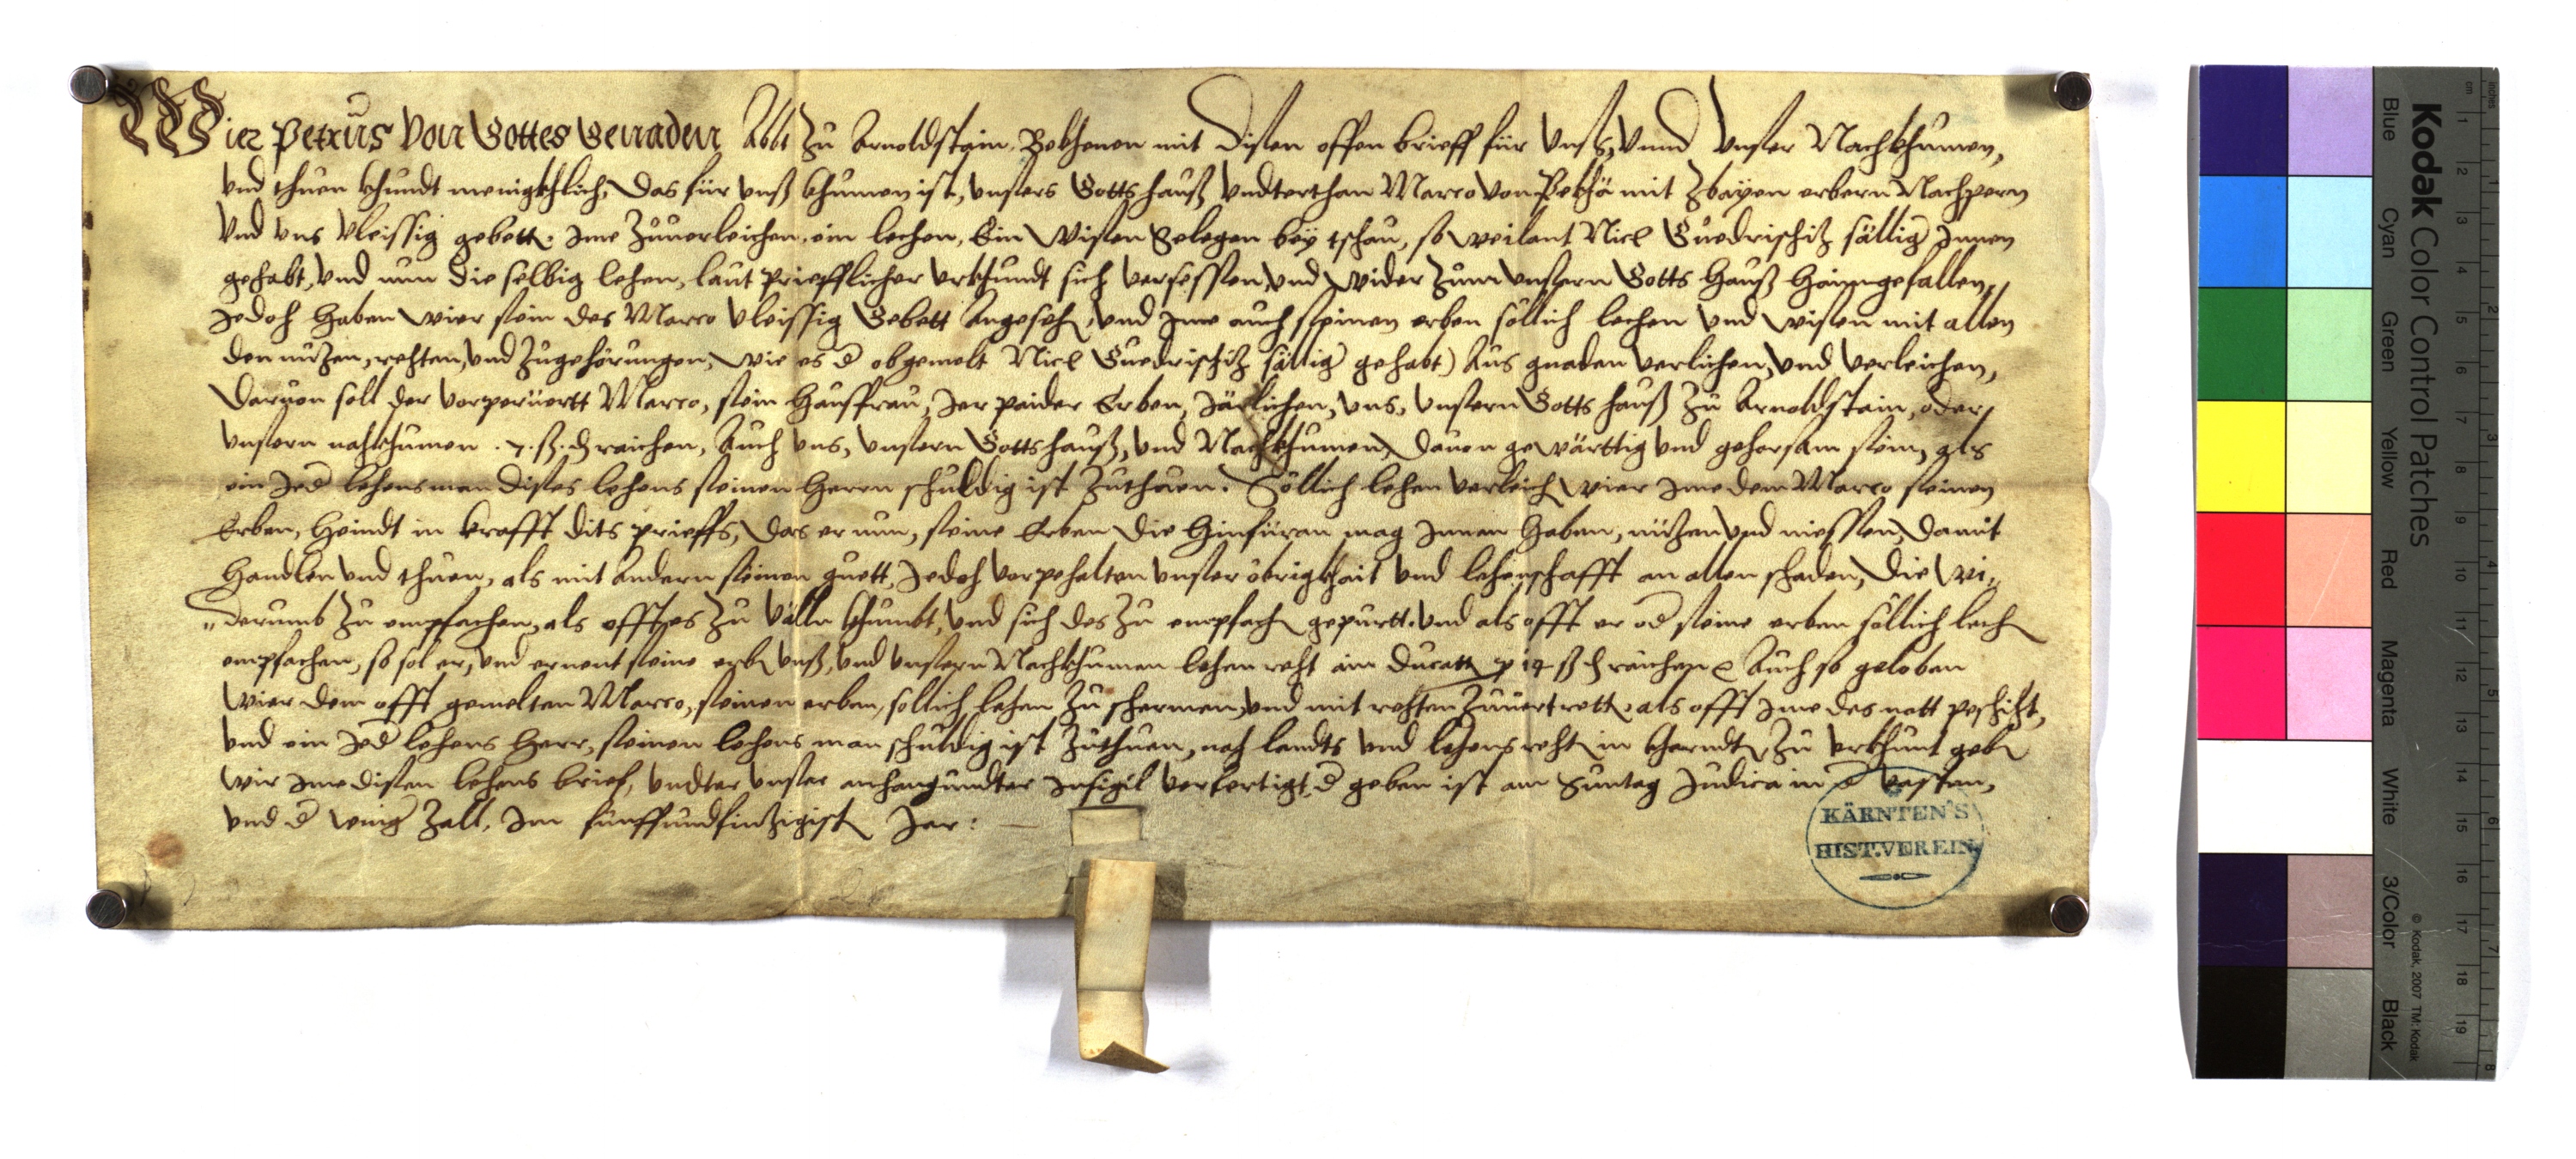 Wier Petrus Von Gottes Genaden Abbt zu Arnoldstain, Bekhenen mit disen offen brieff für Unß, Unnd Unser Nachkhumen,
Und thuen khundt menigkhlich, Das für unß khumen ist, unsers Gottshauß Undterthan Marco von mit Zbayen erbern Nachpern
Und uns Vleissig gebett. Ime Zuuerleichen, ein lechen, Ein Wisen Gelegen bey tschau, so weilant Nicl Guedrischitz sällig Innen
gehabt, Und nun die selbig lehen, laut priefflicher urkhundt sich versessen, Und wider zum unsern Gotts Hauß Haimgefallen,
Jedoch Haben wier sein des Marco Vleissig Gebett Angesehn, Und Ime auch seinen erben söllich lechen Und Wisen mit allen
den nutzen, rechten, und Zugehörungen, wie es d obgemelt Nicl Guedrischitz sällig gehabt) Aus gnaden Verlichen, und verleichen,
Daruon soll der vorperüertt Marco, sein Hausfrau, Jer paider Erben, Järlichen, uns, Unsern Gotts hauß zu Arnoldstain, oder
unsern nachkhumen .7. ß. d raichen, Auch uns, unsern Gottshauß, und Nachkhumen, dauon gewärttig und gehorsam sein, als
ein Jed lehensman dises lehens seinen Herrn schuldig ist Zuthuen. Söllich lehen verleich wier Ime dem Marco seinen
Erben, Heindt in krafft dits prieffs, Das er nun, seine Erben die Hinfüran mag Innen Haben, nützen und niessen, damit
Handlen und thuen, als mit Andern seinen guett, Jedoch vorpehalten unser öbrigkhait und lehenschafft an allen schaden, die Wi„
„derumb zu empfachen, als offt es zu Välln khumbt, Und sich des zu empfachn gepurtt. Und als offt er od seine erben söllich lech
empfachen, so sol er, und ernent seine erbn unß, und unsern Nachkhumen lehen recht ain Ducatt p 14 ß d raichen Auch so geloben
Wier dem offt gemelten Marco, seinen erben, sollich lehen zu schermen, und mit rechten zuuertrett, als offt Ime des nott peschicht,
Und ein Jed lehens Herr, seinen lehens man schuldig ist Zuthuen, nach landts und lehensrecht in kharndtn zu urkhunt gebn
wir Ime disen lehens brief, Undter unser anhangundter Insigil verfertigt, d geben ist am Suntag Judica in d Vasten,
Und d Zall, Im fünffundfintzigist Jar:
KÄRNTEN'S
HIST.VEREIN
Kodak Color Control Patches
Blue Cyan Green Yellow Red Magenta White 3/Color Black
© Kodak, 2007 TM: Kodak
cm 1 2 3 4 5 6 7 8 9 10 11 12 13 14 15 16 17 18 19
inches 1 2 3 4 5 6 7 8